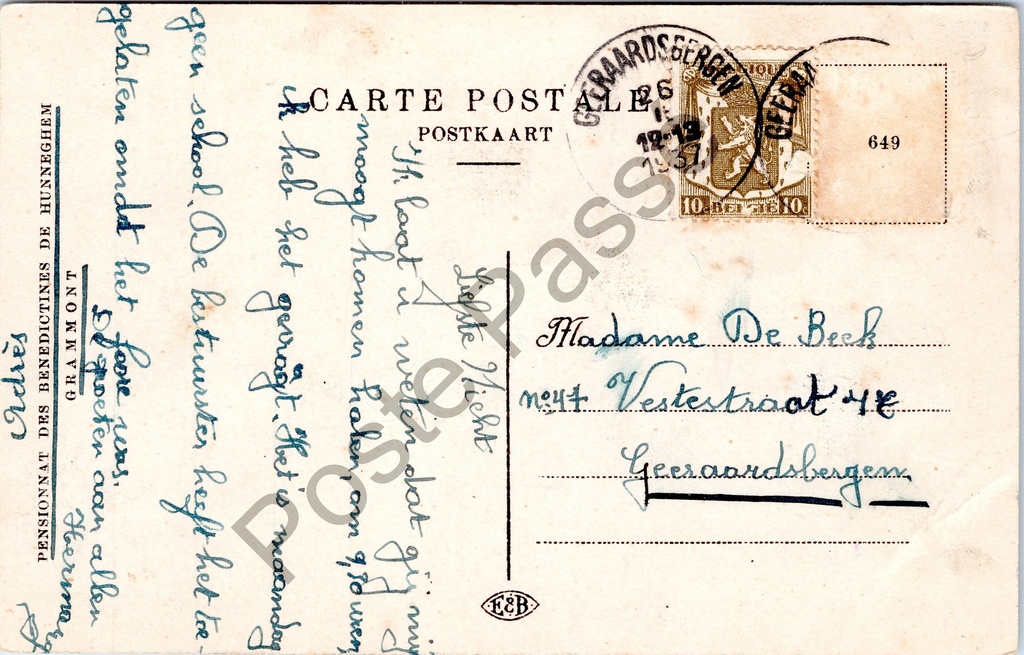 CARTE POSTALE
POSTKAART
GEERAARDSBERGEN
26
12-13
1937
GEERAA
10 BELGIË 10
649
Liefste Nicht
Ik laat u weten dat gij mij
moogt komen halen, om 9,30 uren,
ik heb het gevraagt. Het is maandag
geen school. De bestuurster heeft het toe-
gelaten omdat het foor was.
De groeten aan allen
Adrès
PENSIONNAT DES BENEDICTINES DE HUNNEGHEM
GRAMMONT
Madame De Beck
nº47 Vestestraat 47
Geeraardsbergen
E&B
Poste-Passion